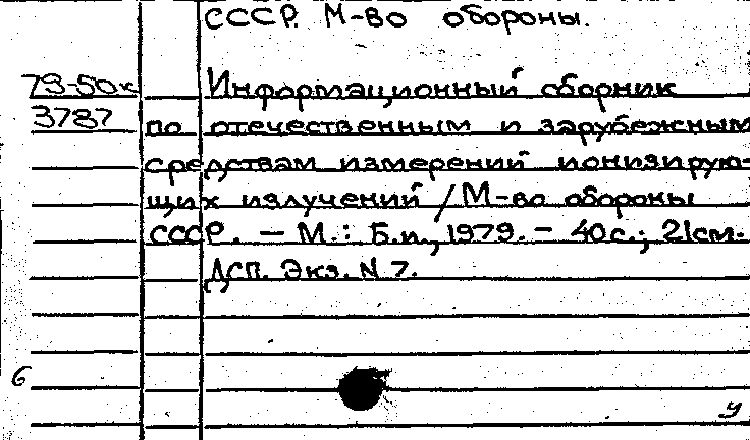 СССР. М-во обороны.
79-50к Информационный сборник
3787 по отечественным и зарубежным
средствам измерений ионизирую-
щих излучений / М-во обороны
СССР. – М.: Б.и., 1979. – 40с.; 21см.
ДСП. Экз. N 7.
6
У